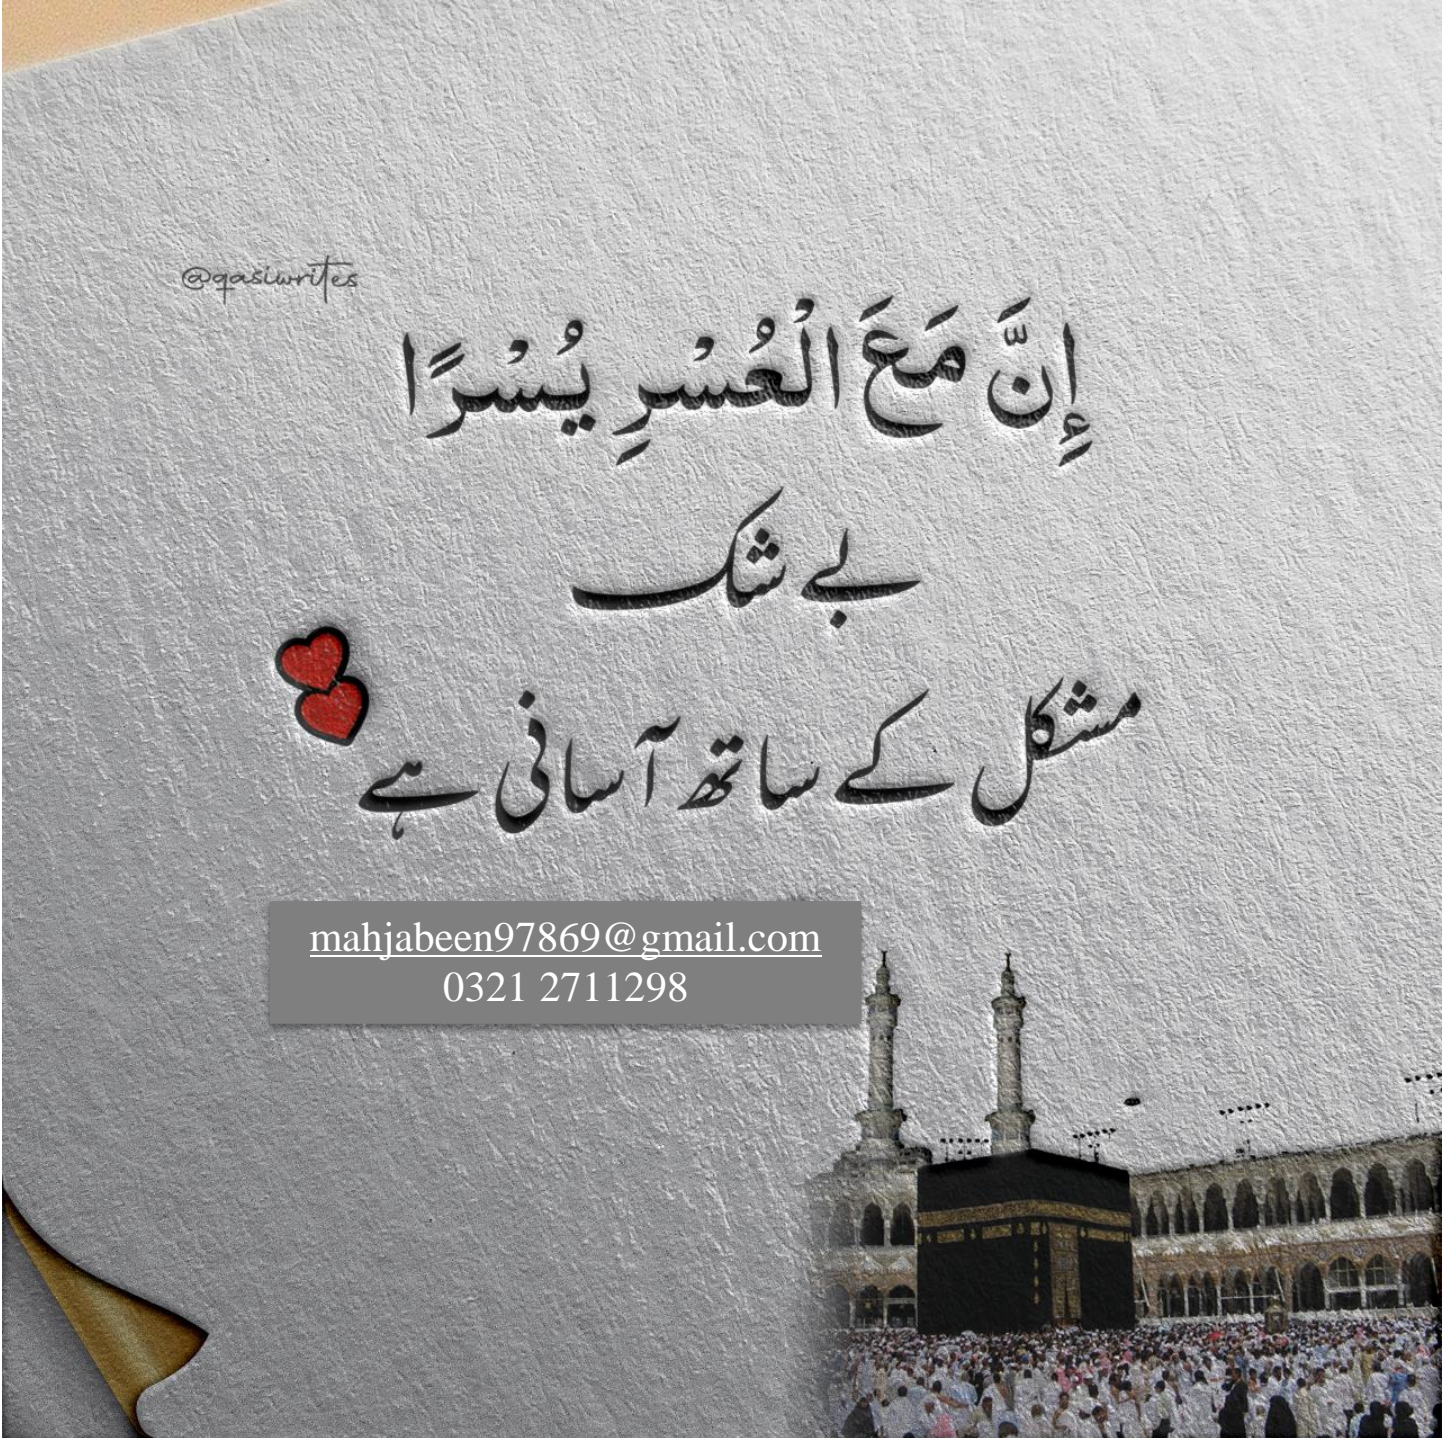 @qasiwrites
إِنَّ مَعَ الْعُسْرِ يُسْرًا
بے شک
مشکل کے ساتھ آسانی ہے
mahjabeen97869@gmail.com
0321 2711298